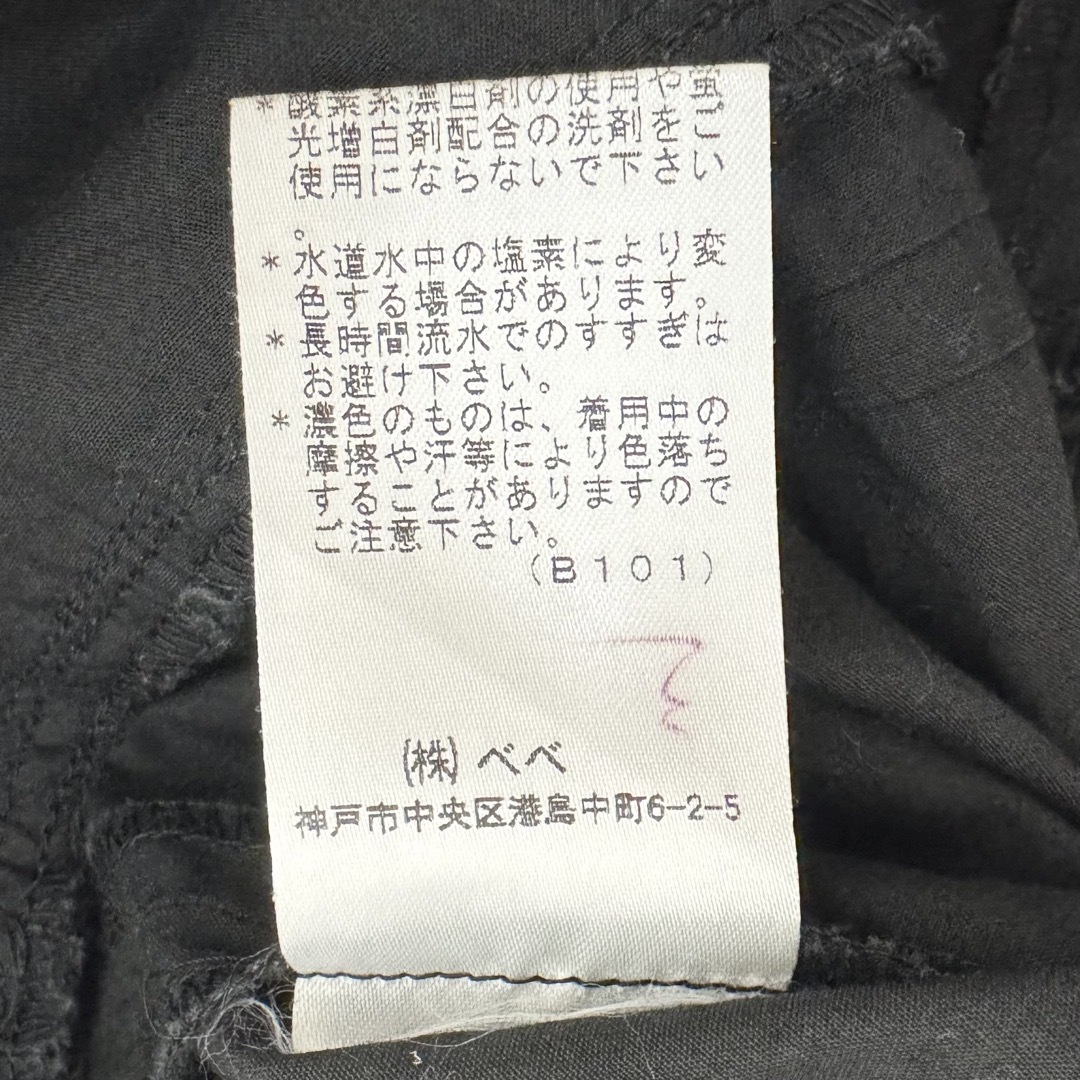 *酸素系漂白剤の使用や蛍
光増白剤配合の洗剤をご
使用にならないで下さい
。
*水道水中の塩素により変
色する場合があります。
*長時間流水でのすすぎは
お避け下さい。
*濃色のものは、着用中の
摩擦や汗等により色落ち
することがありますので
ご注意下さい。
(B101)
(株)べべ
神戸市中央区港島中町6-2-5